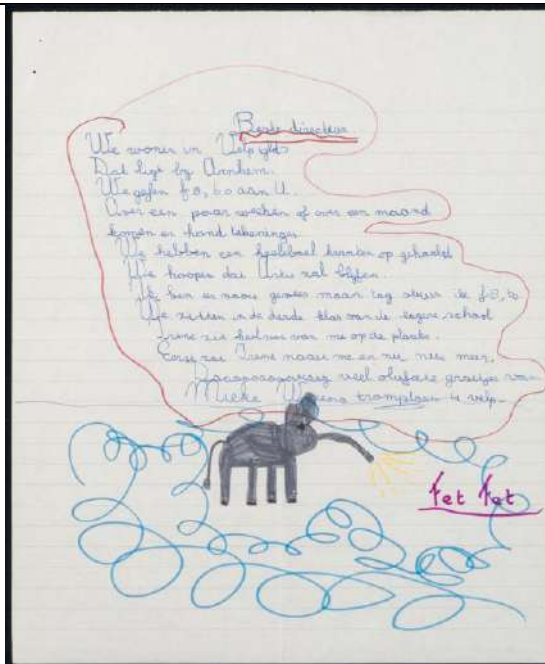 Beste directeur
We wonen in Velp gld
Dat ligt by Arnhem.
We gefen f 0,60 aan U.
Over een paar weeken of over een maand
komen er hand tekeningen
We hebben een heeleboel kranten op gehaald
We hoopen dat Artis zal blijfen.
Ik ben er nooit geweest maar tog stuur ik f 0,60
We zitten in de derde klas van de lagere school
Irene zit van me op de plaats.
Eerst zat Irene naast me en nu niet meer.
veel olifante groetjes van
Mieke tramplaan 4 velp.
tet tet